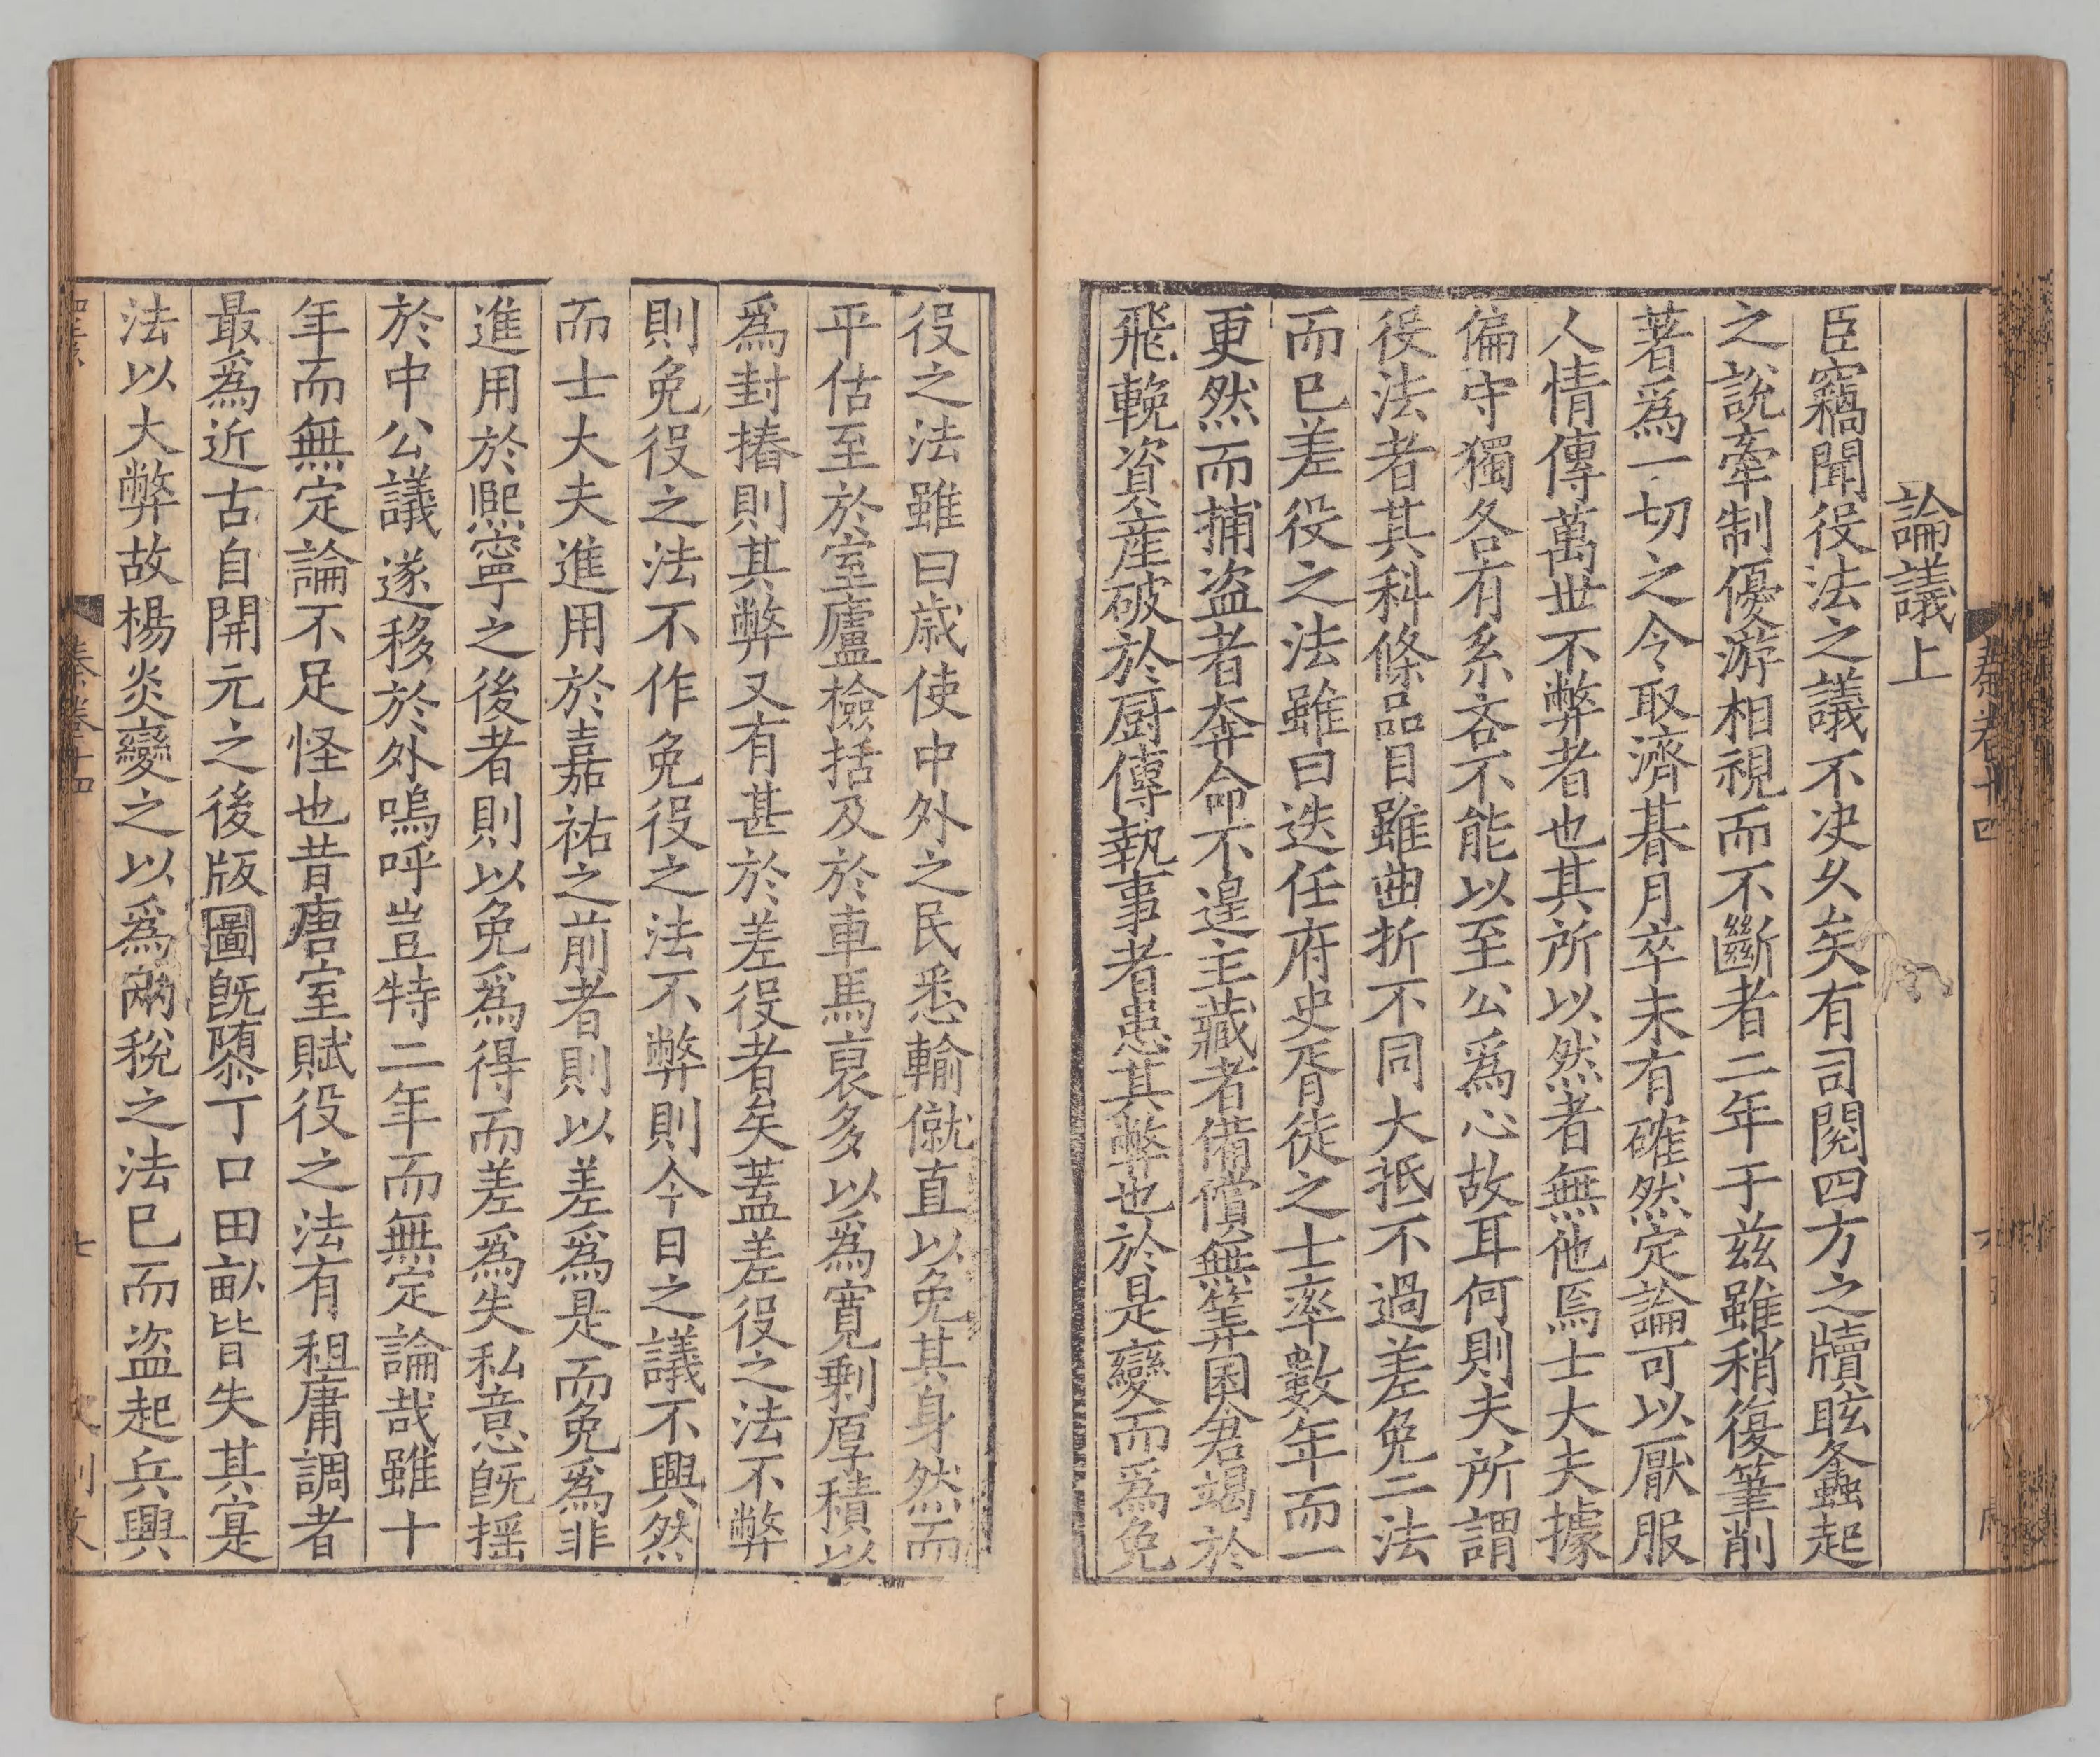 論議上
臣竊聞役法之議不决久矣有司閱四方之牘眩螽起
之說牽制優游相視而不斷者二年于兹雖稍復筆削
著爲一切之令取濟朞月卒未有確然定論可以厭服
人情傳萬世不弊者也其所以然者無他焉士大夫據
偏守獨各有系吝不能以至公爲心故耳何則夫所謂
役法者其科條品目雖曲折不同大抵不過差免二法
而已差役之法雖曰迭任府史胥徒之士率數年而一
更然而捕盗者奔命不遑主藏者備償無筭囷倉竭於
飛輓資産破於厨傳執事者患其弊也於是變而爲免
役之法雖曰歳使中外之民悉輸僦直以免其身然而
平估至於室廬檢括及於車馬裒多以爲寛剩厚積以
爲封樁則其弊又有甚於差役者矣蓋差役之法不弊
則免役之法不作免役之法不弊則今日之議不興然
而士大夫進用於嘉祐之前者則以差爲是而免爲非
進用於熈寧之後者則以免爲得而差爲失私意旣揺
於中公議遂移於外嗚呼豈特二年而無定論哉雖十
年而無定論不足怪也昔唐室賦役之法有租庸調者
最爲近古自開元之後版圖旣隳丁口田畝皆失其寔
法以大弊故楊炎變之以爲兩稅之法已而盗起兵興
秦卷十四